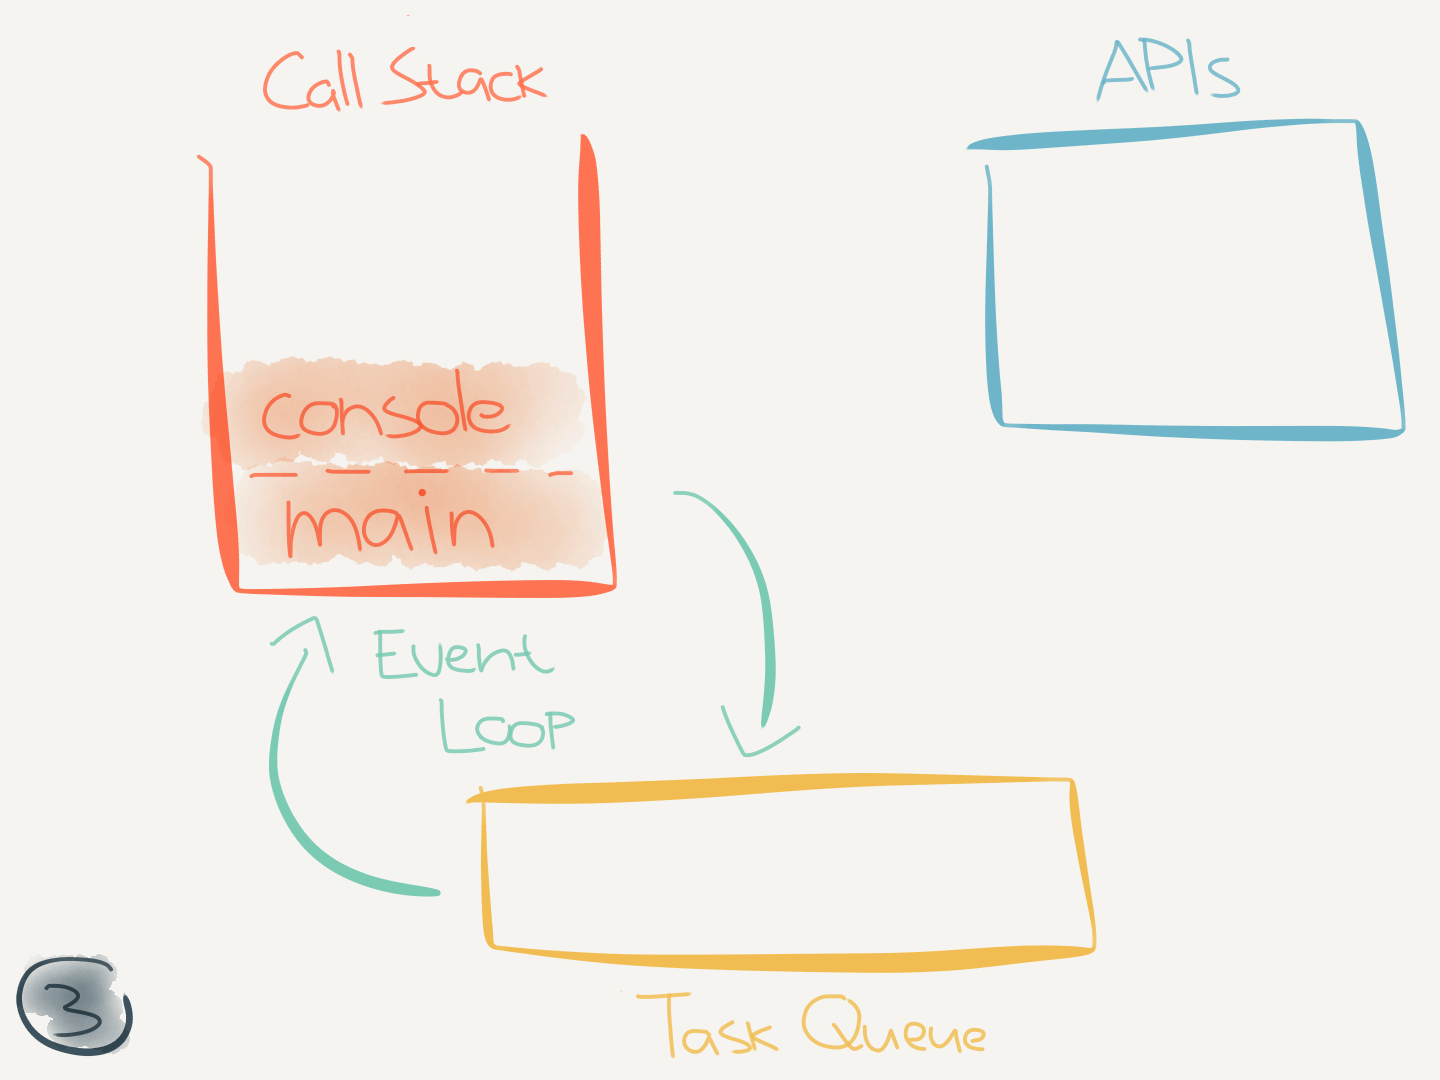 Call Stack
APIs
console
main
Event
Loop
Task Queue
3